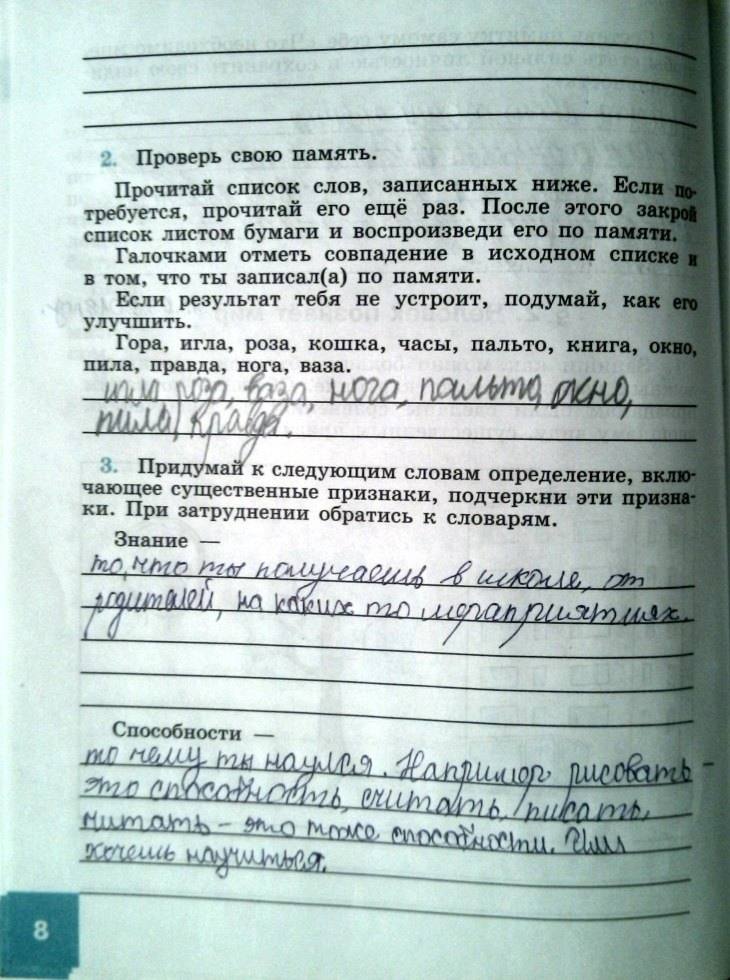 2. Проверь свою память.
Прочитай список слов, записанных ниже. Если по-
требуется, прочитай его ещё раз. После этого закрой
список листом бумаги и воспроизведи его по памяти.
Галочками отметь совпадение в исходном списке и
в том, что ты записал(а) по памяти.
Если результат тебя не устроит, подумай, как его
улучшить.
Гора, игла, роза, кошка, часы, пальто, книга, окно,
пила, правда, нога, ваза.
игла роза, ваза, нога, пальто, окно,
пила, правда.
3. Придумай к следующим словам определение, вклю-
чающее существенные признаки, подчеркни эти призна-
ки. При затруднении обратись к словарям.
Знание —
то, что ты получаешь в школе, от
родителей, на каких то мераприятиях.
Способности —
то чему ты научлся. Например рисовать -
это способность, считать, писать,
читать - это тоже способности. Или
хочешь научиться.
8